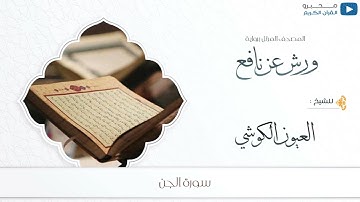 محبرو
القرآن الكريم
المصحف المرتل برواية
ورش عن نافع
للشيخ :
العيون الكوشي
سورة الجن